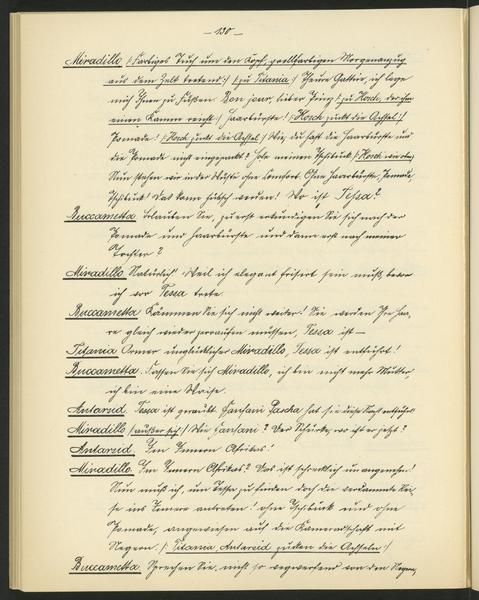 — 130 —
Miradillo (: Farbiges Tuch um den Kopf, grellfarbigen Morgenanzug
aus dem Zelt tretend :) (: zu Titania :) Theure Gattin, ich lege
mich Ihnen zu Füßen Bon jour, lieber Prinz! (: zu Hosch, der ihm
einen Kamm reicht :) Haarbürste! (: Hosch zuckt die Achsel :)
Pomade! (: Hosch zuckt die Achsel :) Wie, du hast die Haarbürste und
die Pomade nicht eingepackt? Hole meinen Tschibuk (: Hosch wie oben
Nun stehen wir in der Wüste ohne Comfort. Ohne Haarbürste, Pomade,
Tschibuk! Das kann hübsch werden! Wo ist Tessa?
Buccametta. Erlauben Sie, zuerst erkundigen Sie sich nach der
Pomade und Haarbürste und dann erst nach meiner
Tochter?
Miradillo. Natürlich! Weil ich elegant frisirt sein muß, bevor
ich vor Tessa trete.
Buccametta. Kämmen Sie sich nicht weiter! Sie werden Ihr Haa-
re gleich wieder zerraufen müssen, Tessa ist —
Titania. Armer unglücklicher Miradillo, Tessa ist entführt!
Buccametta. Fassen Sie sich Miradillo, ich bin nicht mehr Mutter,
ich bin eine Waise.
Antarsid. Tessa ist geraubt. Fanfani Pascha hat sie diese Nacht entführt
Miradillo (: außer sich :) Wie Fanfani? Der Schurke, wo ist er jetzt?
Antarsid. Im Innern Afrikas!
Miradillo. Im Innern Afrikas? Das ist schrecklich unangenehm!
Nun muß ich, um Tessa zu finden doch die verdammte Rei-
se ins Innere antreten! ohne Tschibuk und ohne
Pomade, angewiesen auf die Kameradschaft mit
Negern. (: Titania, Antarsid zucken die Achseln :)
Buccametta. Sprechen Sie nicht so wegwerfend von den Negern,